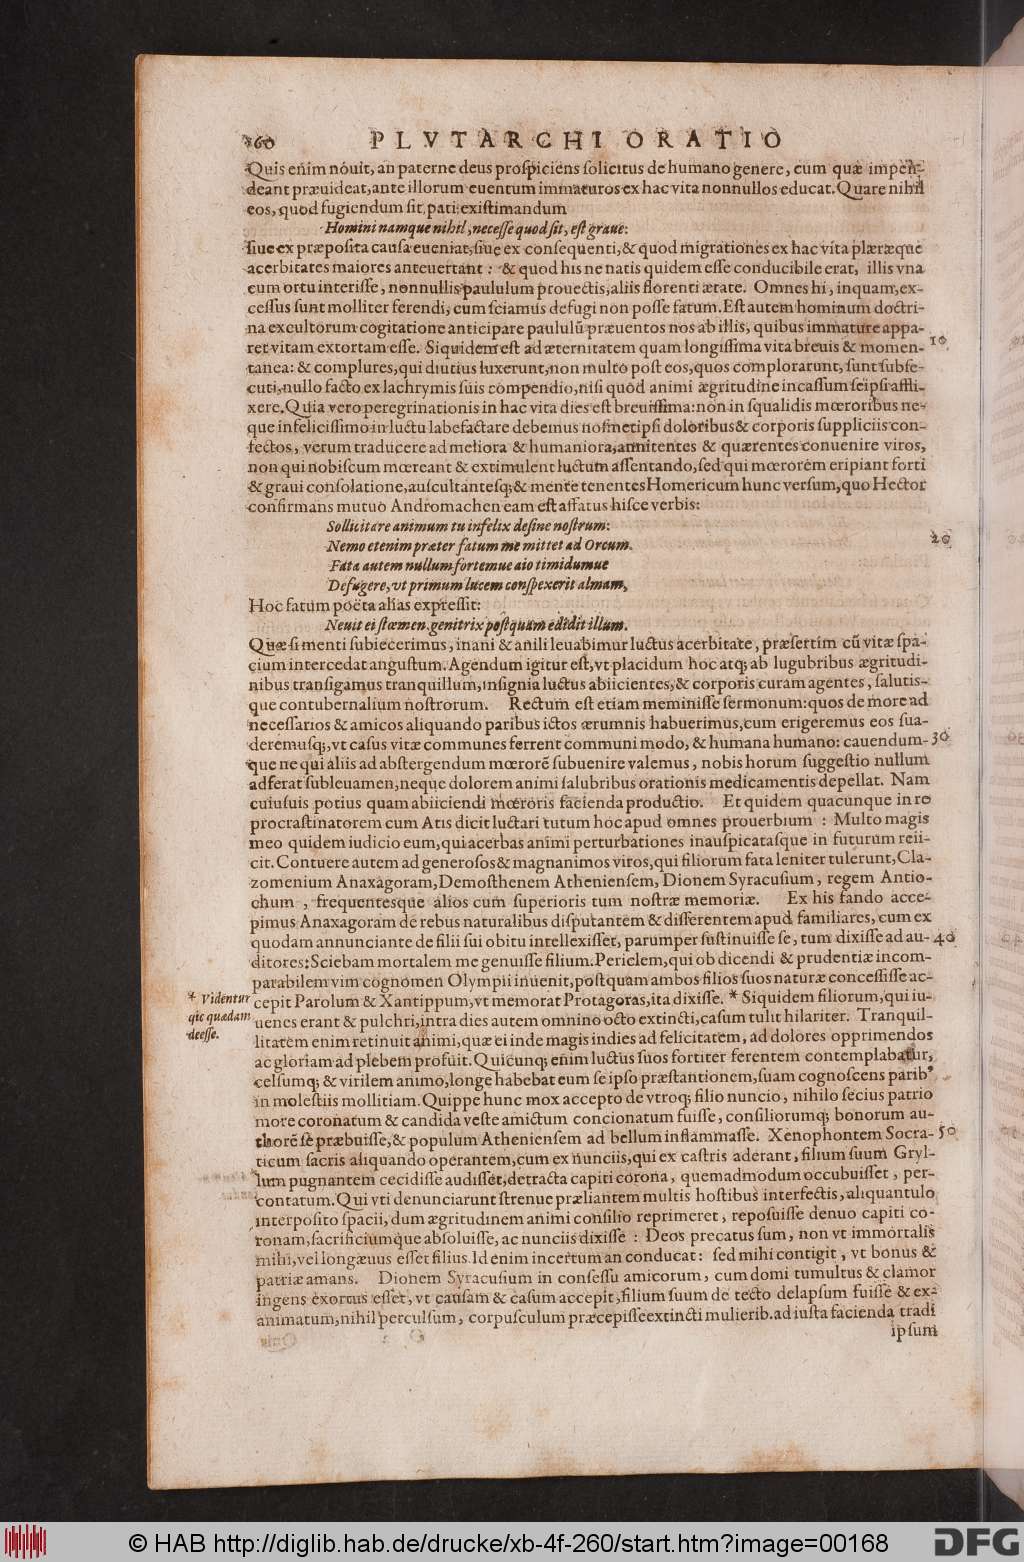 160 PLVTARCHI ORATIO
Quis enim nouit, an paterne deus prospiciens solicitus de humano genere, cum quæ impen-
deant præuideat, ante illorum euentum immaturos ex hac vita nonnullos educat. Quare nihil
eos, quod fugiendum sit, pati existimandum
Homini namque nihil, necesse quod sit, est graue:
siue ex præposita causa eueniat, siue ex consequenti, & quod migrationes ex hac vita plæræque
acerbitates maiores anteuertant: & quod his ne natis quidem esse conducibile erat, illis vna
cum ortu interisse, nonnullis paululum prouectis, aliis florenti ætate. Omnes hi, inquam, ex-
cessus sunt molliter ferendi, cum sciamus defugi non posse fatum. Est autem hominum doctri-
na excultorum cogitatione anticipare paululū præuentos nos ab illis, quibus immature appa-
ret vitam extortam esse. Siquidem est ad æternitatem quam longissima vita breuis & momen- 10
tanea: & complures, qui diutius luxerunt, non multo post eos, quos complorarunt, sunt subse-
cuti, nullo facto ex lachrymis suis compendio, nisi quod animi ægritudine incassum seipsi affli-
xere. Quia vero peregrinationis in hac vita dies est breuissima: non in squalidis mœroribus ne-
que infelicissimo in luctu labefactare debemus nosmetipsi doloribus & corporis suppliciis con-
fectos, verum traducere ad meliora & humaniora, annitentes & quærentes conuenire viros,
non qui nobiscum mœreant & extimulent luctum assentando, sed qui mœrorem eripiant forti
& graui consolatione, auscultantesq; & mente tenentes Homericum hunc versum, quo Hector
confirmans mutuo Andromachen eam est affatus hisce verbis:
Sollicitare animum tu infelix desine nostrum:
Nemo etenim præter fatum me mittet ad Orcum. 20
Fata autem nullum fortemue aio timidumue
Defugere, vt primum lucem conspexerit almam,
Hoc fatum poëta alias expressit:
Neuit ei stæmen genitrix postquam edidit illum.
Quæ si menti subiecerimus, inani & anili leuabimur luctus acerbitate, præsertim cū vitæ spa-
cium intercedat angustum. Agendum igitur est, vt placidum hoc atq; ab lugubribus ægritudi-
nibus transigamus tranquillum, insignia luctus abiicientes, & corporis curam agentes, salutis-
que contubernalium nostrorum. Rectum est etiam meminisse sermonum: quos de more ad
necessarios & amicos aliquando paribus ictos ærumnis habuerimus, cum erigeremus eos sua-
deremusq;, vt casus vitæ communes ferrent communi modo, & humana humano: cauendum- 30
que ne qui aliis ad abstergendum mœrorē subuenire valemus, nobis horum suggestio nullum
adferat subleuamen, neque dolorem animi salubribus orationis medicamentis depellat. Nam
cuiusuis potius quam abiiciendi mœroris facienda productio. Et quidem quacunque in re
procrastinatorem cum Atis dicit luctari tutum hoc apud omnes prouerbium: Multo magis
meo quidem iudicio eum, qui acerbas animi perturbationes inauspicatasque in futurum reii-
cit. Contuere autem ad generosos & magnanimos viros, qui filiorum fata leniter tulerunt, Cla-
zomenium Anaxagoram, Demosthenem Atheniensem, Dionem Syracusium, regem Antio-
chum, frequentesque alios cum superioris tum nostræ memoriæ. Ex his fando acce-
pimus Anaxagoram de rebus naturalibus disputantem & disserentem apud familiares, cum ex
quodam annunciante de filii sui obitu intellexisset, parumper sustinuisse se, tum dixisse ad au- 40
ditores: Sciebam mortalem me genuisse filium. Periclem, qui ob dicendi & prudentiæ incom-
parabilem vim cognomen Olympii inuenit, postquam ambos filios suos naturæ concessisse ac-
* Videntur cepit Parolum & Xantippum, vt memorat Protagoras, ita dixisse. * Siquidem filiorum, qui iu-
qic quædam uenes erant & pulchri, intra dies autem omnino octo extincti, casum tulit hilariter. Tranquil-
deesse. litatem enim retinuit animi, quæ ei inde magis indies ad felicitatem, ad dolores opprimendos
ac gloriam ad plebem profuit. Quicunq; enim luctus suos fortiter ferentem contemplabatur,
celsumq; & virilem animo, longe habebat eum se ipso præstantionem, suam cognoscens parib⁹
in molestiis mollitiam. Quippe hunc mox accepto de vtroq; filio nuncio, nihilo secius patrio
more coronatum & candida veste amictum concionatum fuisse, consiliorumq; bonorum au-
thorē se præbuisse, & populum Atheniensem ad bellum inflammasse. Xenophontem Socra- 50
ticum sacris aliquando operantem, cum ex nunciis, qui ex castris aderant, filium suum Gryl-
lum pugnantem cecidisse audisset, detracta capiti corona, quemadmodum occubuisset, per-
contatum. Qui vti denunciarunt strenue præliantem multis hostibus interfectis, aliquantulo
interposito spacii, dum ægritudinem animi consilio reprimeret, reposuisse denuo capiti co-
ronam, sacrificiumque absoluisse, ac nunciis dixisse: Deos precatus sum, non vt immortalis
mihi, vel longæuus esset filius. Id enim incertum an conducat: sed mihi contigit, vt bonus &
patriæ amans. Dionem Syracusium in consessu amicorum, cum domi tumultus & clamor
ingens exortus esset, vt causam & casum accepit, filium suum de tecto delapsum fuisse & ex-
animatum, nihil perculsum, corpusculum præcepisse extincti mulierib. ad iusta facienda tradi
ipsum
© HAB http://diglib.hab.de/drucke/xb-4f-260/start.htm?image=00168
DFG